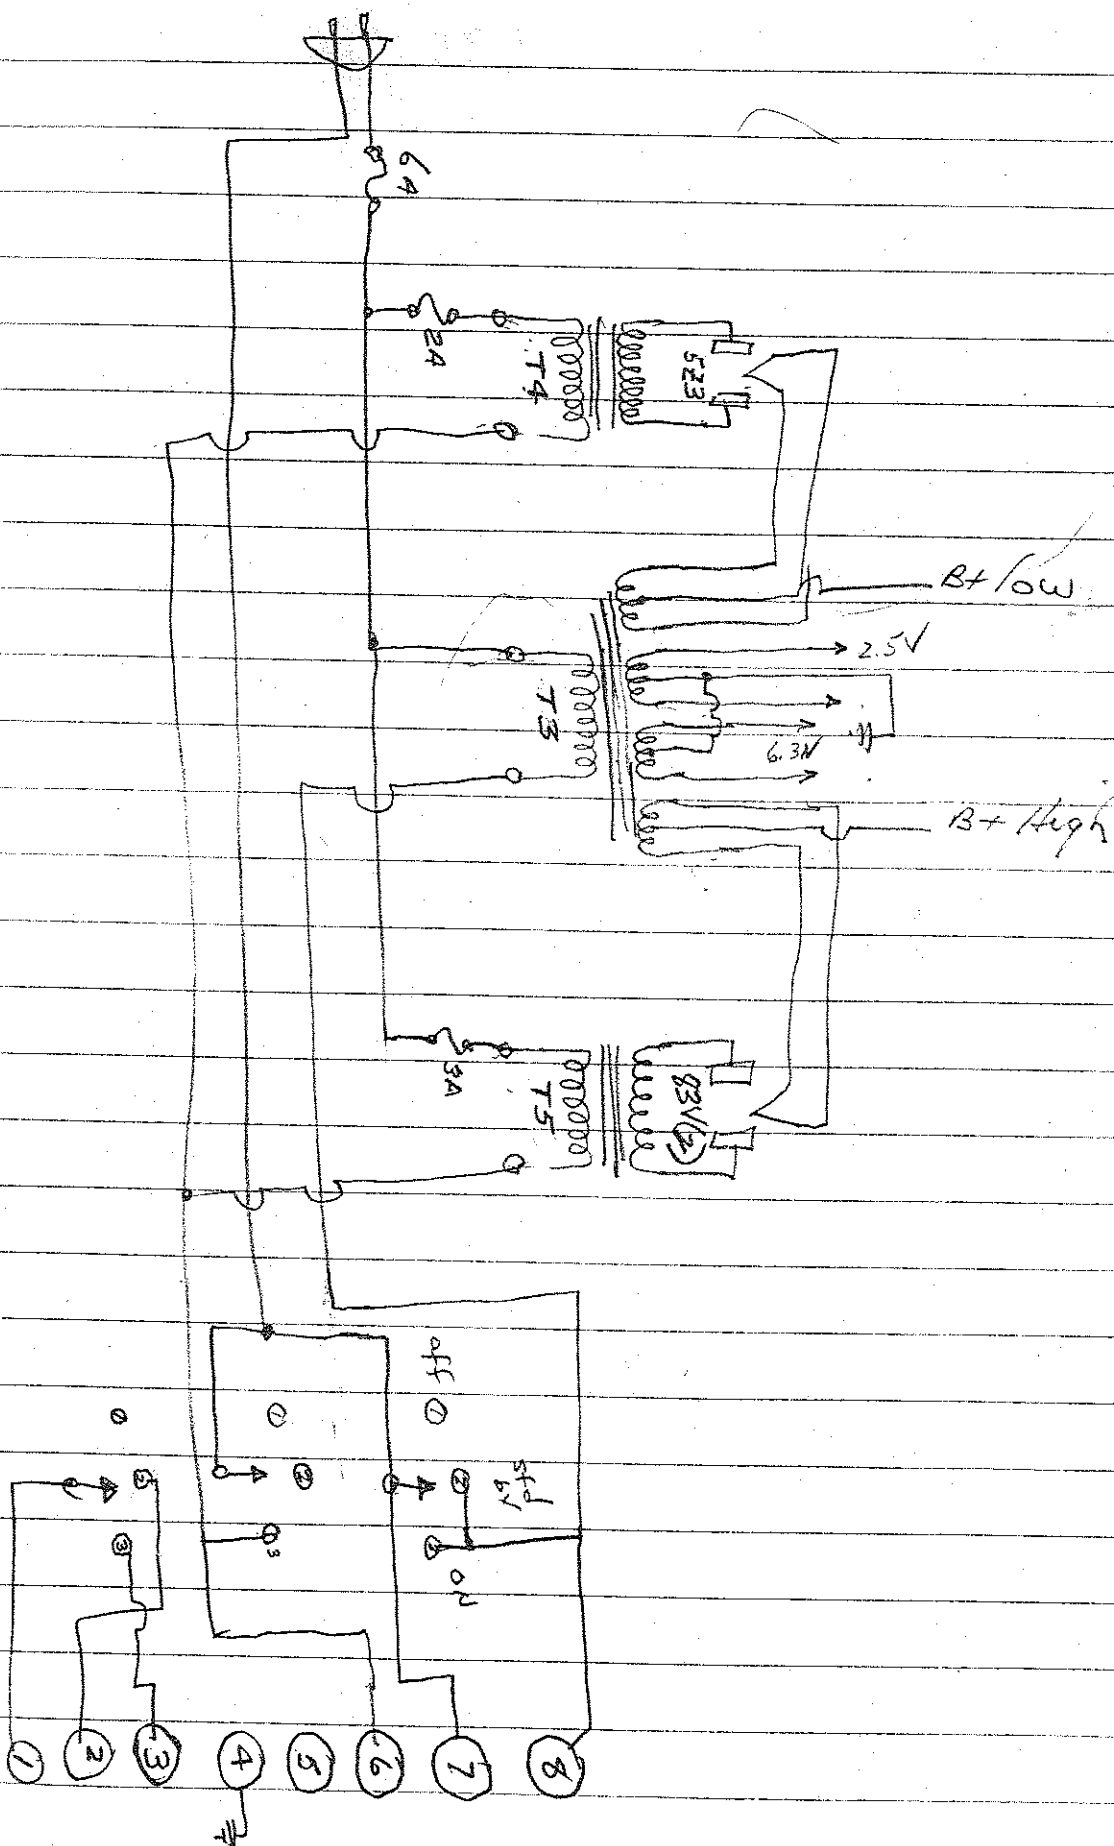 6A
2A
T4
5Z3
B+ low
2.5V
T3
6.3V
B+ High
3A
T5
83V(2)
off
①
①
②
②
std
by
②
③
3
③
ON
①
②
③
④
⑤
⑥
⑦
⑧